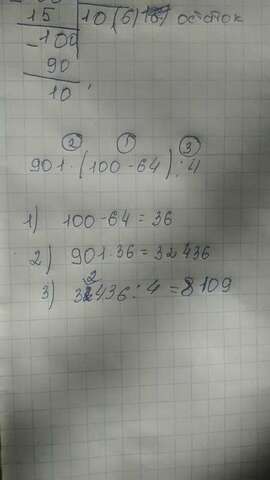 15 10(6) остаток
-100
90
10
2 1 3
901·(100-64):4
1) 100-64=36
2) 901·36=32436
3) 32436:4=8109